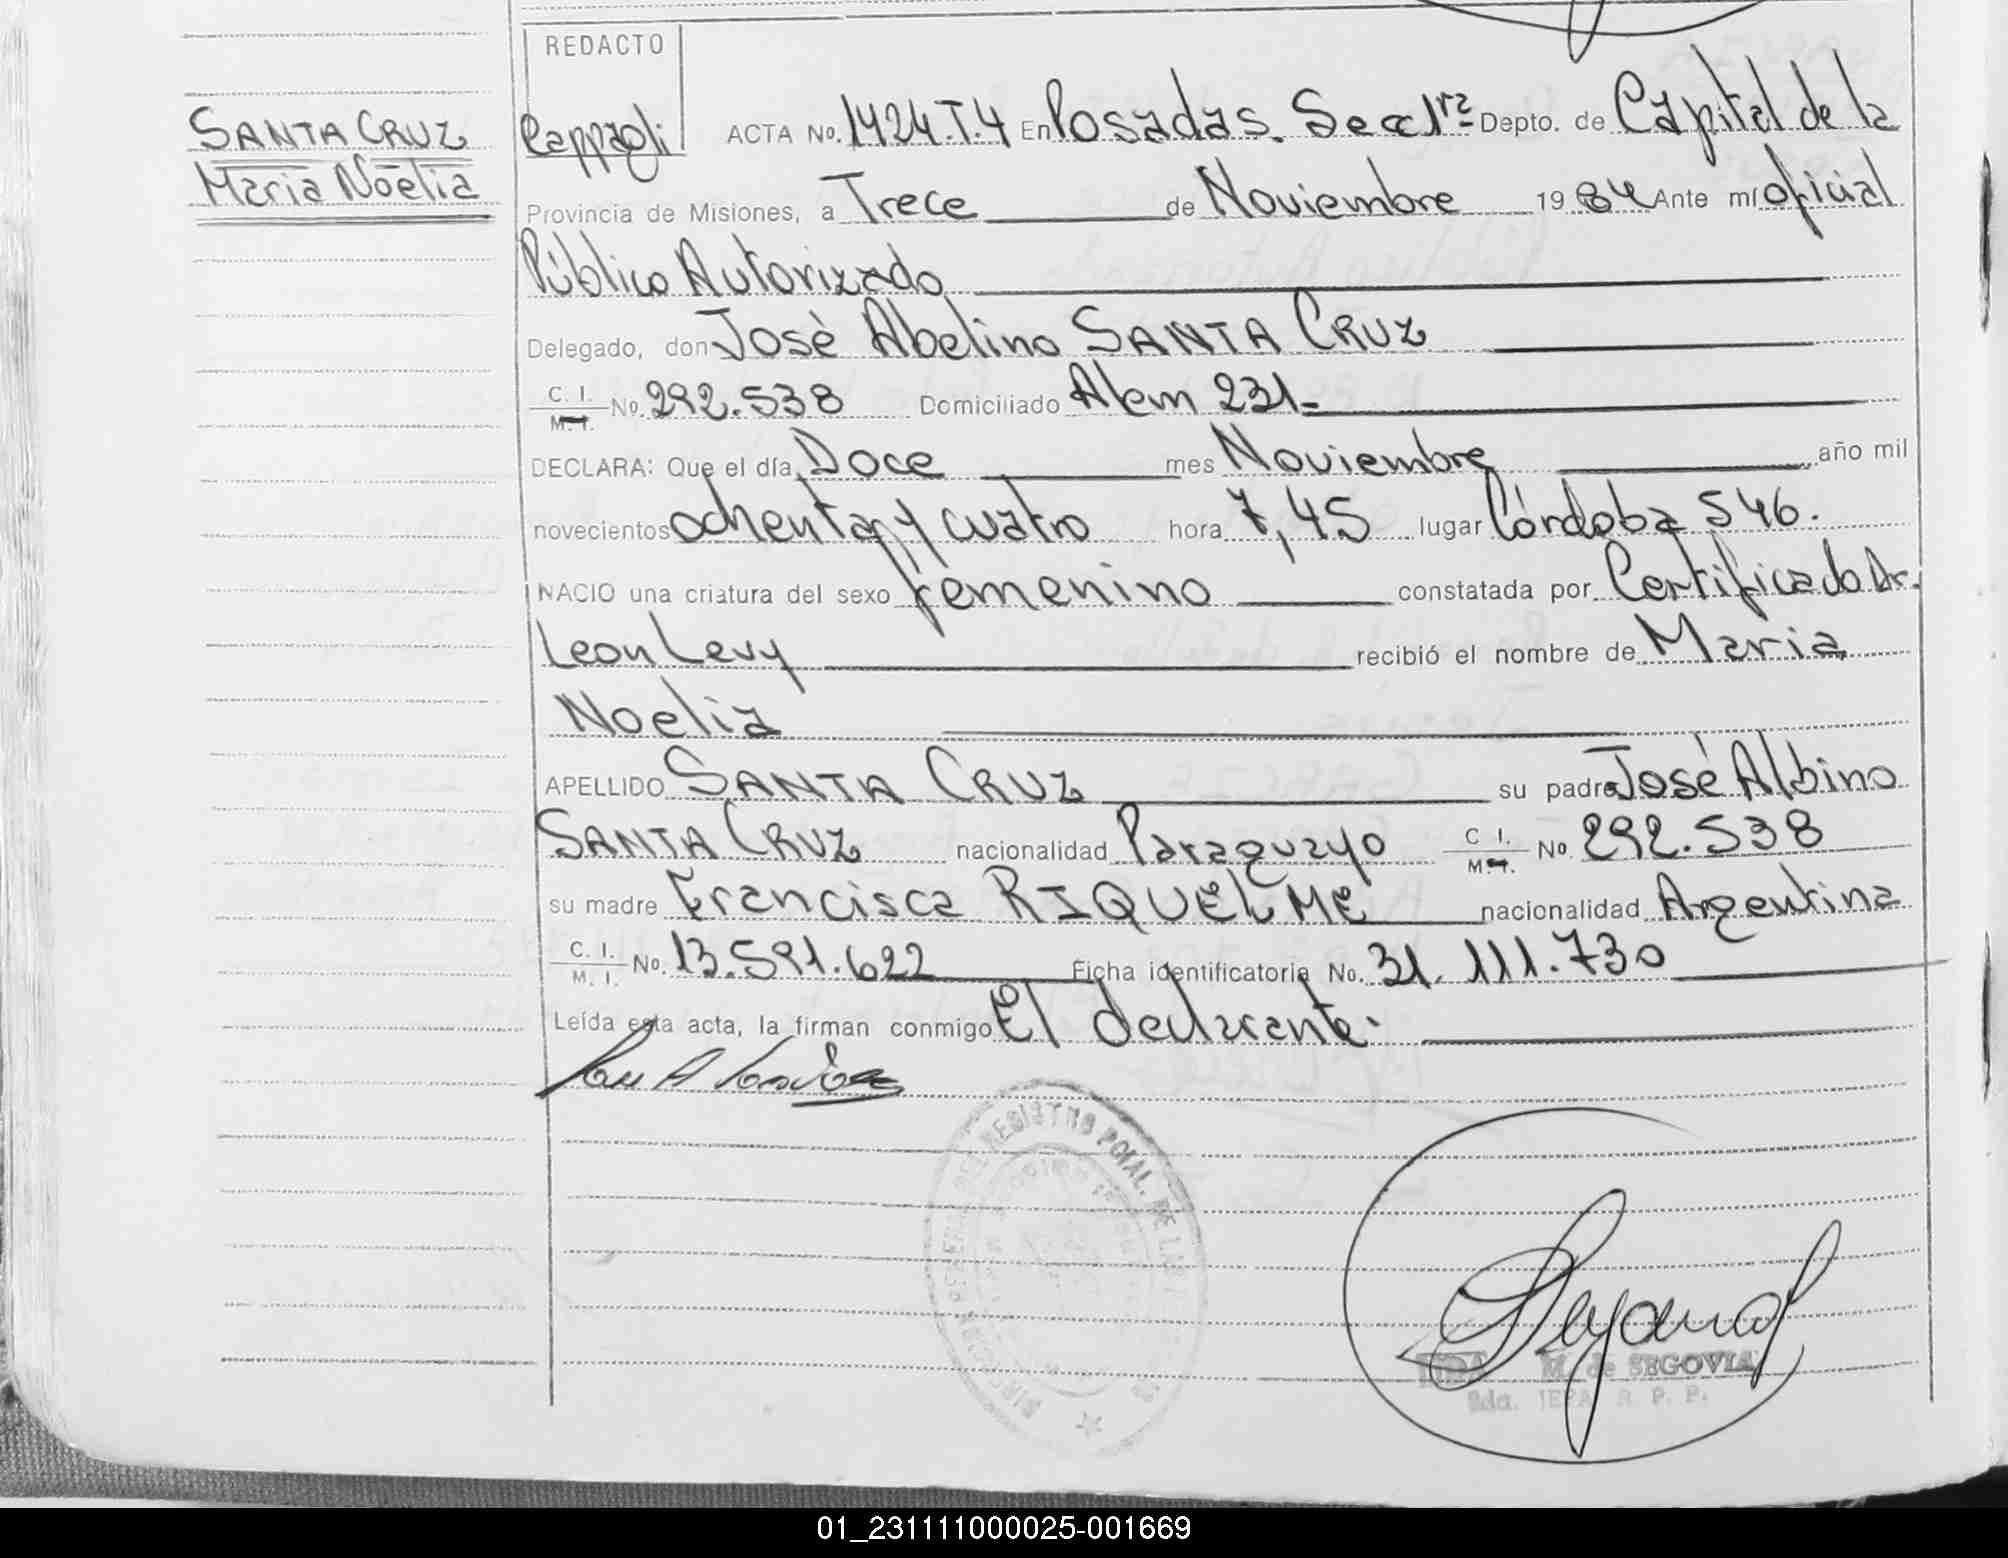 REDACTO
SANTA CRUZ
Maria Noelia
Cappagli ACTA No. 1424.T.4 En Posadas. Secc 1ra Depto. de Capital de la
Provincia de Misiones, a Trece de Noviembre 1984 Ante mí oficial
Público Autorizado
Delegado, don José Abelino SANTA CRUZ
C. I. M. I. No. 292.538 Domiciliado Alem 231-
DECLARA: Que el día Doce mes Noviembre año mil
novecientos ochenta y cuatro hora 7,45 lugar Córdoba 546.
NACIO una criatura del sexo femenino constatada por Certificado Dr.
Leon Levy recibió el nombre de Maria
Noelia
APELLIDO SANTA CRUZ su padre José Albino
SANTA CRUZ nacionalidad Paraguayo C I. M. I. No. 292.538
su madre Francisca RIQUELME nacionalidad Argentina
C. I. M. I. No. 13.591.622 Ficha identificatoria No. 31.111.730
Leída esta acta, la firman conmigo El declarante.
M. de SEGOVIA
01_231111000025-001669